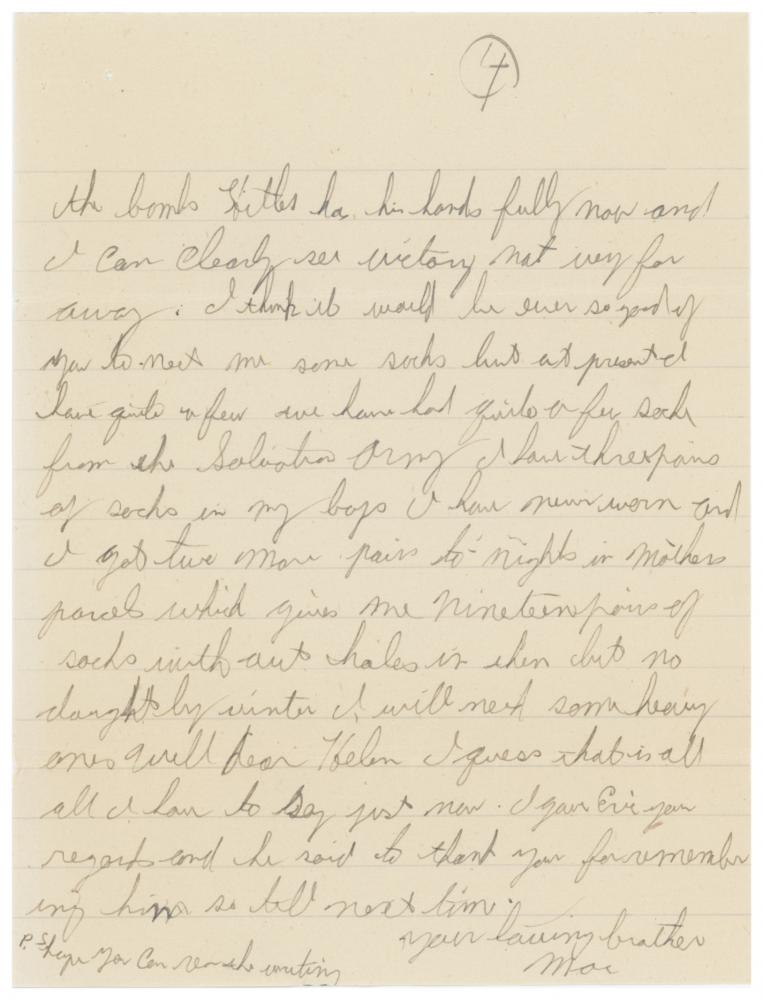 4
the bombs Hitler has his hands fully now and
I can clearly see victory not very far
away. I think it would be ever so good of
you to me some socks but at present I
have quite a few we have had quite a few socks
from the Salvation Army I have three pairs
of socks in my bags I have never worn and
I got two more pairs to-nights in Mothers
parcel which gives me Nineteen pairs of
socks without holes in them but no
by winter I will need some heavy
ones well dear Helen I guess that is all
all I have to say just now. I gave your
regards and he said to thank you for remember
ing him so till next time.
your loving brother
Mac
P.S. hope you can the writing